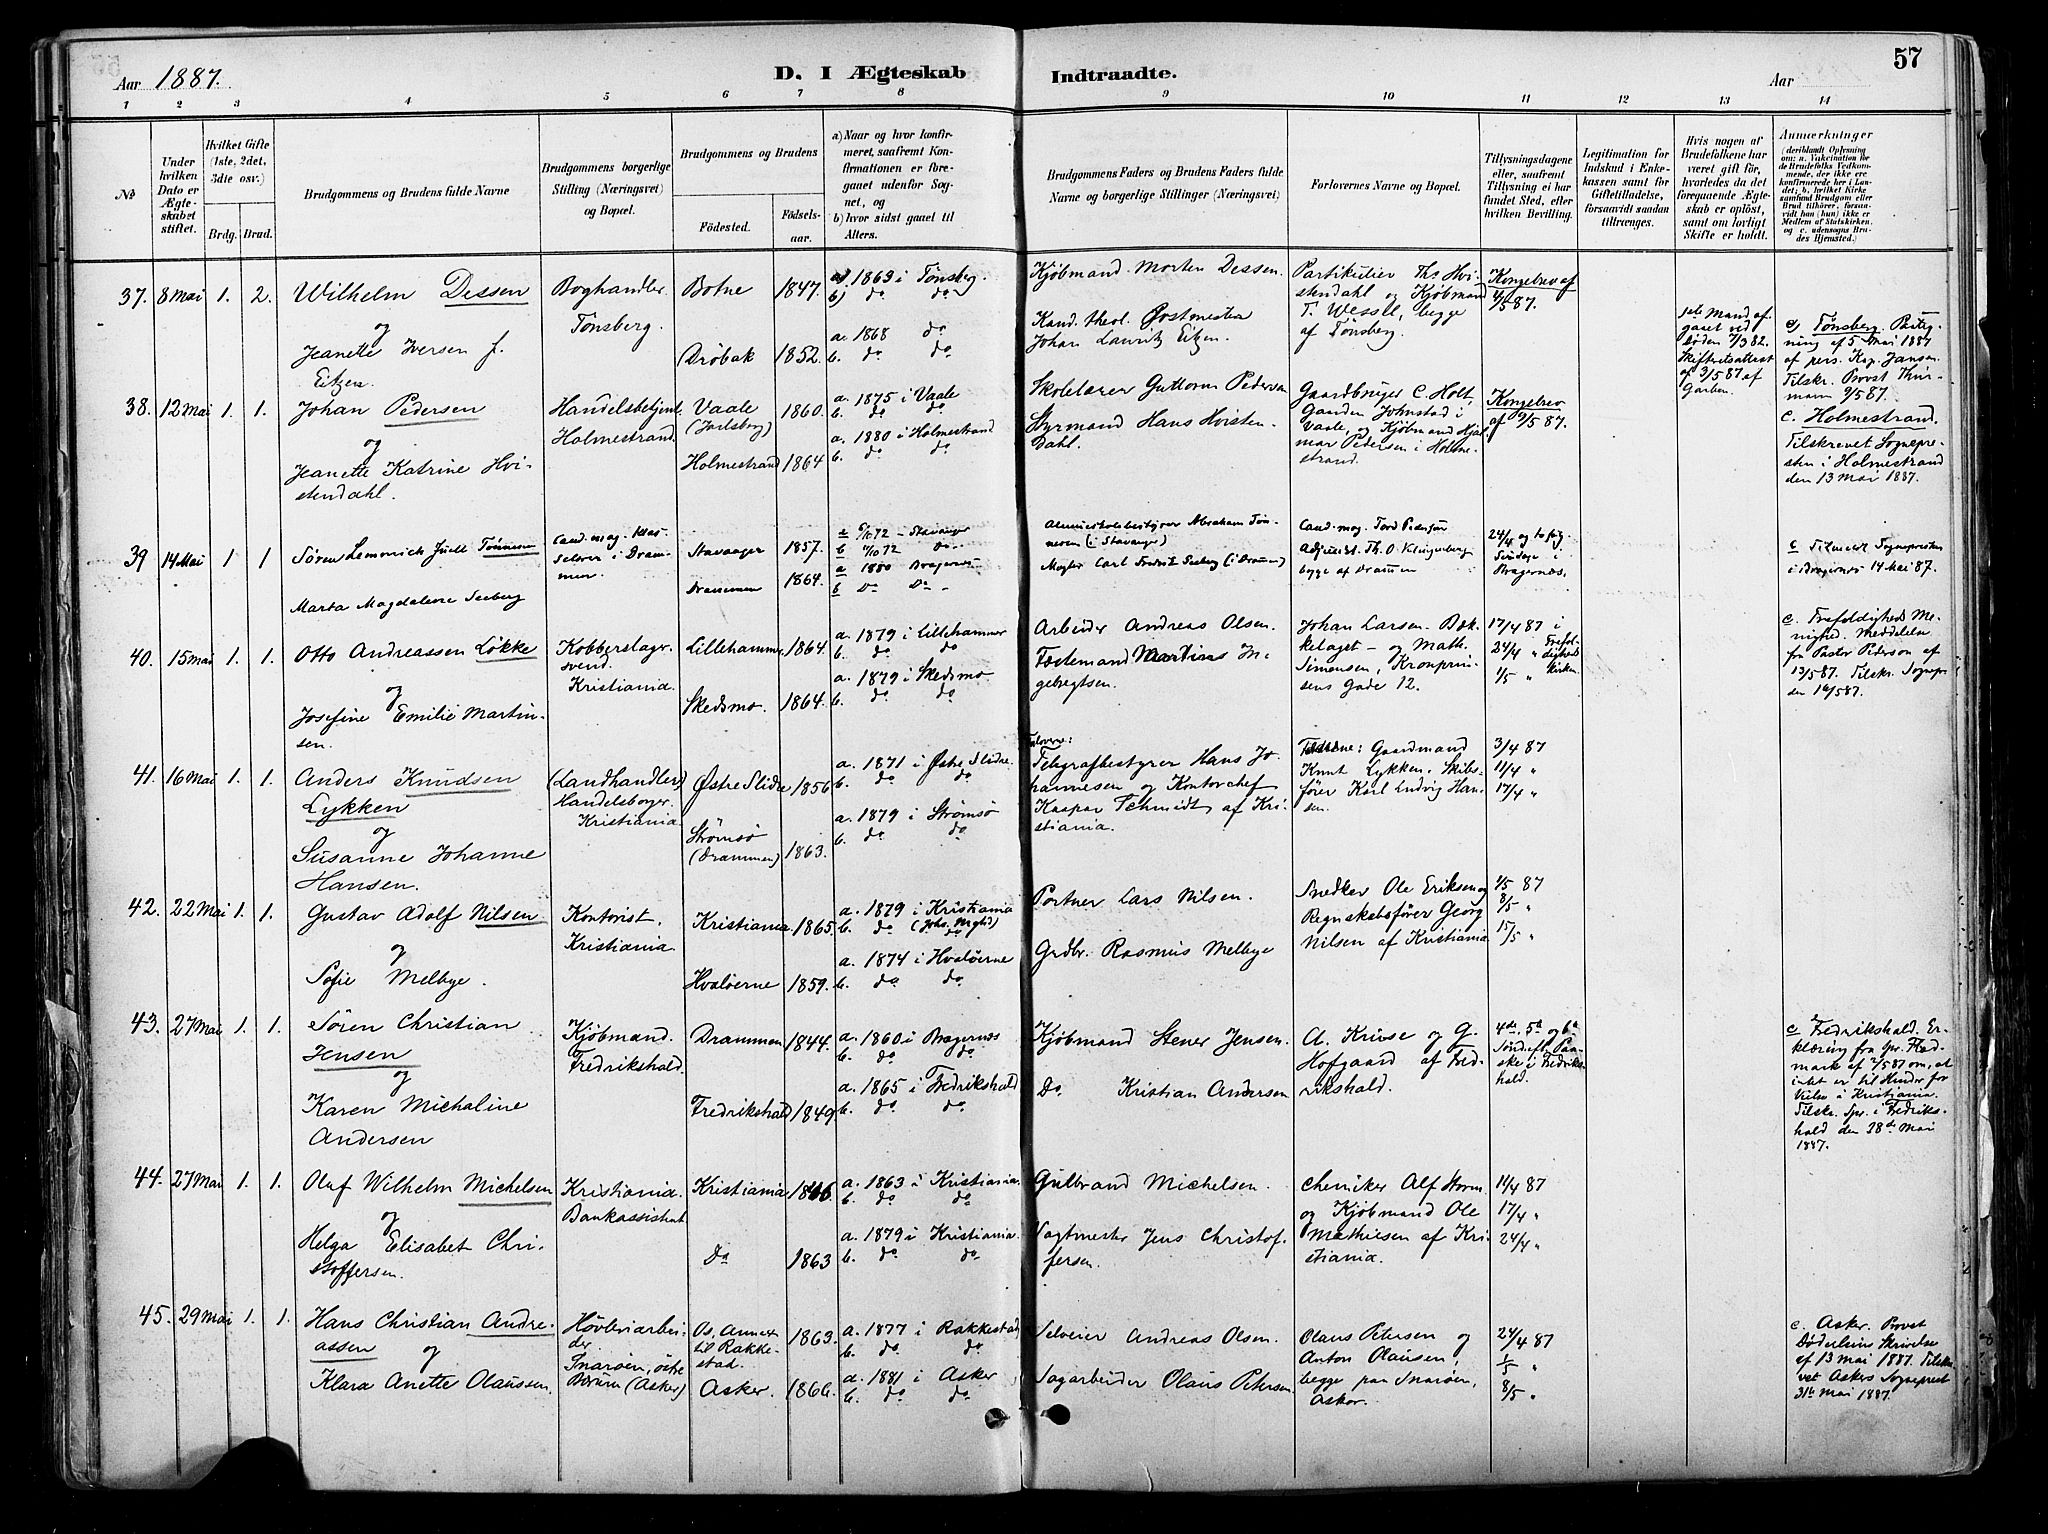 Aar 1887.
D. I Ægteskab
Indtraadte.
Aar
57
1 2 3 4 5 6 7 8 9 10 11 12 13 14
No
Under hvilken Dato er Ægteskabet stiftet.
Hvilket Gifte (1ste, 2det, 3die osv.)
Brdg. Brud.
Brudgommens og Brudens fulde Navne
Brudgommens borgerlige Stilling (Næringsvei) og Bopæl.
Brudgommens og Brudens
Fødested.
Fødselsaar.
a) Naar og hvor konfirmeret, saafremt Konfirmationen er foregaaet udenfor Sognet, og
b) hvor sidst gaaet til Alters.
Brudgommens Faders og Brudens Faders fulde Navne og borgerlige Stillinger (Næringsvei)
Forlovernes Navne og Bopæl.
Tillysningsdagene eller, saafremt Tillysning ei har fundet Sted, efter hvilken Bevilling.
Legitimation for Indskud i Enkekassen samt for Giftetilladelse, forsaavidt saadan tiltrænges.
Hvis nogen af Brudefolkene har været gift før, hvorledes da det foregaaende Ægteskab er opløst, samt om lovligt Skifte er holdt.
Anmærkninger
(deriblandt Oplysning om: a. Vakcination for de Brudefolks Vedkommende, der ikke ere konfirmerede her i Landet, b. hvilket Kirkesamfund Brudgom eller Brud tilhører, forsaavidt han (hun) ikke er Medlem af Statskirken og c. udensogns Brudes Hjemsted.)
37. 8 Mai 1. 2. Wilhelm Dessen
og
Jeanette Iversen f.
Eitzen.
Boghandler
Tönsberg.
Botne 1847.
a) 1863 i Tönsberg.
b) do do
Dröbak 1852.
a. 1868 do
b. do do
Kjöbmand Morten Dessen.
Kand. theol. Postmester
Johan Lauritz Eitzen.
Partikulier Ths Hvistendahl og Kjöbmand
T. Wessel, begge
af Tönsberg.
Kongebrev af
4/5 87.
1ste Mand afgaaet ved
Döden 7/3 82.
Skifteretsattest
af 3/5 87 af
Garben.
c) Tönsberg. Paategning af 5 Mai 1887
af pers. Kap. Jansen
Tilskr. Provst Thurmann 9/5 87.
38. 12 Mai 1. 1. Johan Pedersen
og
Jeanette Katrine Hvistendahl.
Handelsbetjent
Holmestrand.
Vaale
(Jarlsberg)
1860.
a. 1875 i Vaale
b. do do
Holmestrand 1864
a. 1880 i Holmestrand
b. do do
Skolelærer Guttorm Pedersen
Styrmand Hans Hvistendahl.
Gaardbruger C. Holt,
Gaarden Johnstad i
Vaale, og Kjöbmand Hjalmar Pedersen i Holmestrand.
Kongebrev
af 9/5 87.
c. Holmestrand.
Tilskrevet Sognepresten i Holmestrand
den 13 Mai 1887.
39 14 Mai 1 1 Sören Lemmich Juell Tönnesen
Marta Magdalene Seeberg
Cand. mag. Klasselærer i Drammen.
Stavanger 1857.
a 6/10 72 - Stavanger
b 11/10 72 do
Drammen 1864.
a 1880 Bragernæs
b Do Do
Almueskolebestyrer Abraham Tönnesen (i Stavanger)
Mægler Carl Fredrik Seeberg (i Drammen)
Cand. mag. Tord Pedersen
Adjunkt Th. O. Klingenberg
begge af Drammen
24/4 og to fölg.
Söndage i
Bragernæs.
c Tilmeldt Sognepresten
i Bragernæs 14 Mai 87.
40. 15 Mai 1. 1. Otto Andreassen Lökke
og
Josefine Emilie Martinsen.
Kobberslagersvend.
Kristiania.
Lillehammer 1864.
a. 1879 i Lillehammer
b. do do
Skedsmo. 1864.
a. 1879 i Skedsmo
b. do do
Arbeider Andreas Olsen.
Fæstemand Martinus Ingebregtsen.
Johan Larsen. Bækkelaget — og Math.
Simensen, Kronprinsens Gade 12.
17/4 87 i
24/4 " Trefoldigheds
1/5 " Kirken
c. Trefoldigheds Menighed. Meddelelse
fra Pastor Pederson af
13/5 87. Tilskr. Sognepresten 16/5 87.
41. 16 Mai 1. 1. Anders Knudsen
Lykken
og
Susanne Johanne
Hansen.
(Landhandler)
Handelsborger.
Kristiania.
Østre Slidre 1856
a. 1871 i Østre Slidre.
b. do do
Strömsö
(Drammen) 1863.
a. 1879 i Strömsö
b. do do
Forlovere:
Telegrafbestyrer Hans Johannesen og Kontorchef
Kaspar Schmidt af Kristiania.
Fædrene: Gaardmand
Knut Lykken. Skibsförer Karl Ludvig Hansen.
3/4 87
11/4 "
17/4 "
42. 22 Mai 1. 1. Gustav Adolf Nilsen
og
Sofie Melbye.
Kontorist.
Kristiania.
Kristiania 1865.
a. 1879 i Kristiania
(Johs. Mghd)
b. do do
Hvalöerne 1859.
a. 1874 i Hvalöerne
b. do do
Portner Lars Nilsen.
Grdbr. Rasmus Melbye
Snedker Ole Eriksen og
Regnskabsförer Georg
Nilsen af Kristiania
1/5 87
8/5 "
15/5 "
43. 27 Mai 1. 1. Sören Christian
Jensen
og
Karen Michaline
Andersen
Kjöbmand.
Fredrikshald.
Drammen 1844.
a. 1860 i Bragernæs
b. do do
Fredrikshald 1849.
a. 1865 i Fredrikshald
b. do do
Kjöbmand Stener Jensen.
Do Kristian Andersen
A. Kruse og G.
Hofgaard af Fredrikshald.
4de, 5te og 6te
Sönd. eft. Paaske i Fredrikshald.
c Fredrikshald. Erklæring fra Spr. Hedmark af 2/5 87 om, at
intet er til Hinder for
Vielse i Kristiania.
Tilskr. Spr. i Fredrikshald den 28de Mai
1887.
44. 27 Mai 1. 1. Oluf Wilhelm Michelsen
og
Helga Elisabet Christoffersen.
Kristiania.
Bankassistent
Kristiania
a. 1863 i Kristiania.
b. do do
Do 1863
a. 1879 i Kristiania.
b. do do
Gulbrand Michelsen.
Vagtmester Jens Christoffersen.
Chemiker Alf Storm.
og Kjöbmand Ole
Mathiesen af Kristiania.
11/4 87
17/4 "
24/4 "
45. 29 Mai 1. 1. Hans Christian Andreassen
og
Klara Anette Olaussen.
Hövleriarbeider
Snaröen, östre
Bærum (Asker)
Os, Annex
til Rakkestad. 1863.
a. 1877 i Rakkestad
b. do do
Asker. 1866.
a. 1881 i Asker
b. do do
Selveier Andreas Olsen.
Sagarbeider Olaus Petersen.
Olaus Petersen og
Anton Olausen,
begge paa Snaröen,
Asker.
24/4 87
1/5 "
8/5 "
c. Asker. Provst
Döderleins Skrivelse
af 13 Mai 1887. Tilskrevet Askers Sogneprest
31te Mai 1887.